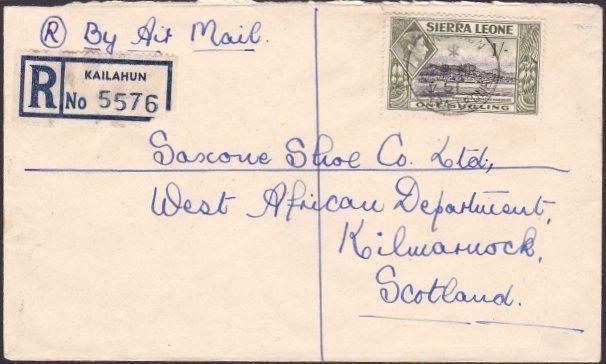 Ⓡ By Air Mail.
SIERRA LEONE
1/-
ONE SHILLING
KAILAHUN
R No 5576
Saxone Shoe Co. Ltd,
West African Department,
Kilmarnock,
Scotland.